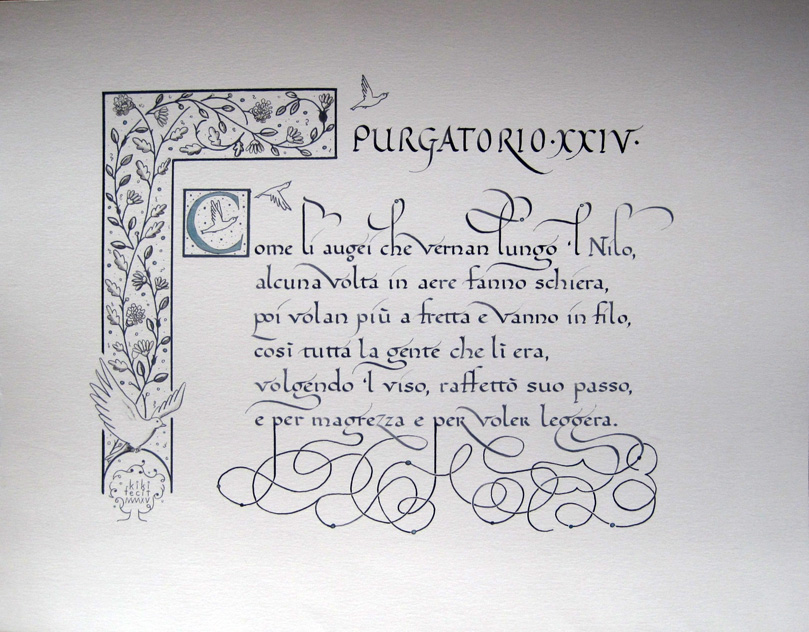 PURGATORIO·XXIV·
Come li augei che vernan lungo 'l Nilo,
alcuna volta in aere fanno schiera,
poi volan più a fretta e vanno in filo,
così tutta la gente che lì era,
volgendo 'l viso, raffettò suo passo,
e per magrezza e per voler leggera.
kiki
fecit